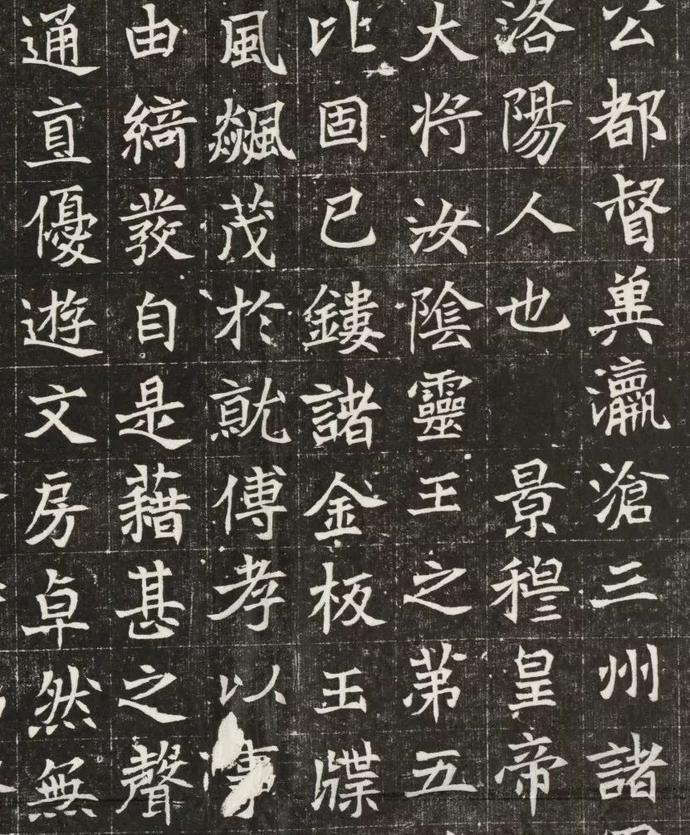 公都督兾瀛滄三州諸
洛陽人也 景穆皇帝
大将汝陰靈王之苐五
比固已鏤諸金板玉牒
風飆茂於就傅孝以事
由綺發自是藉甚之聲
通直優遊文房卓然無